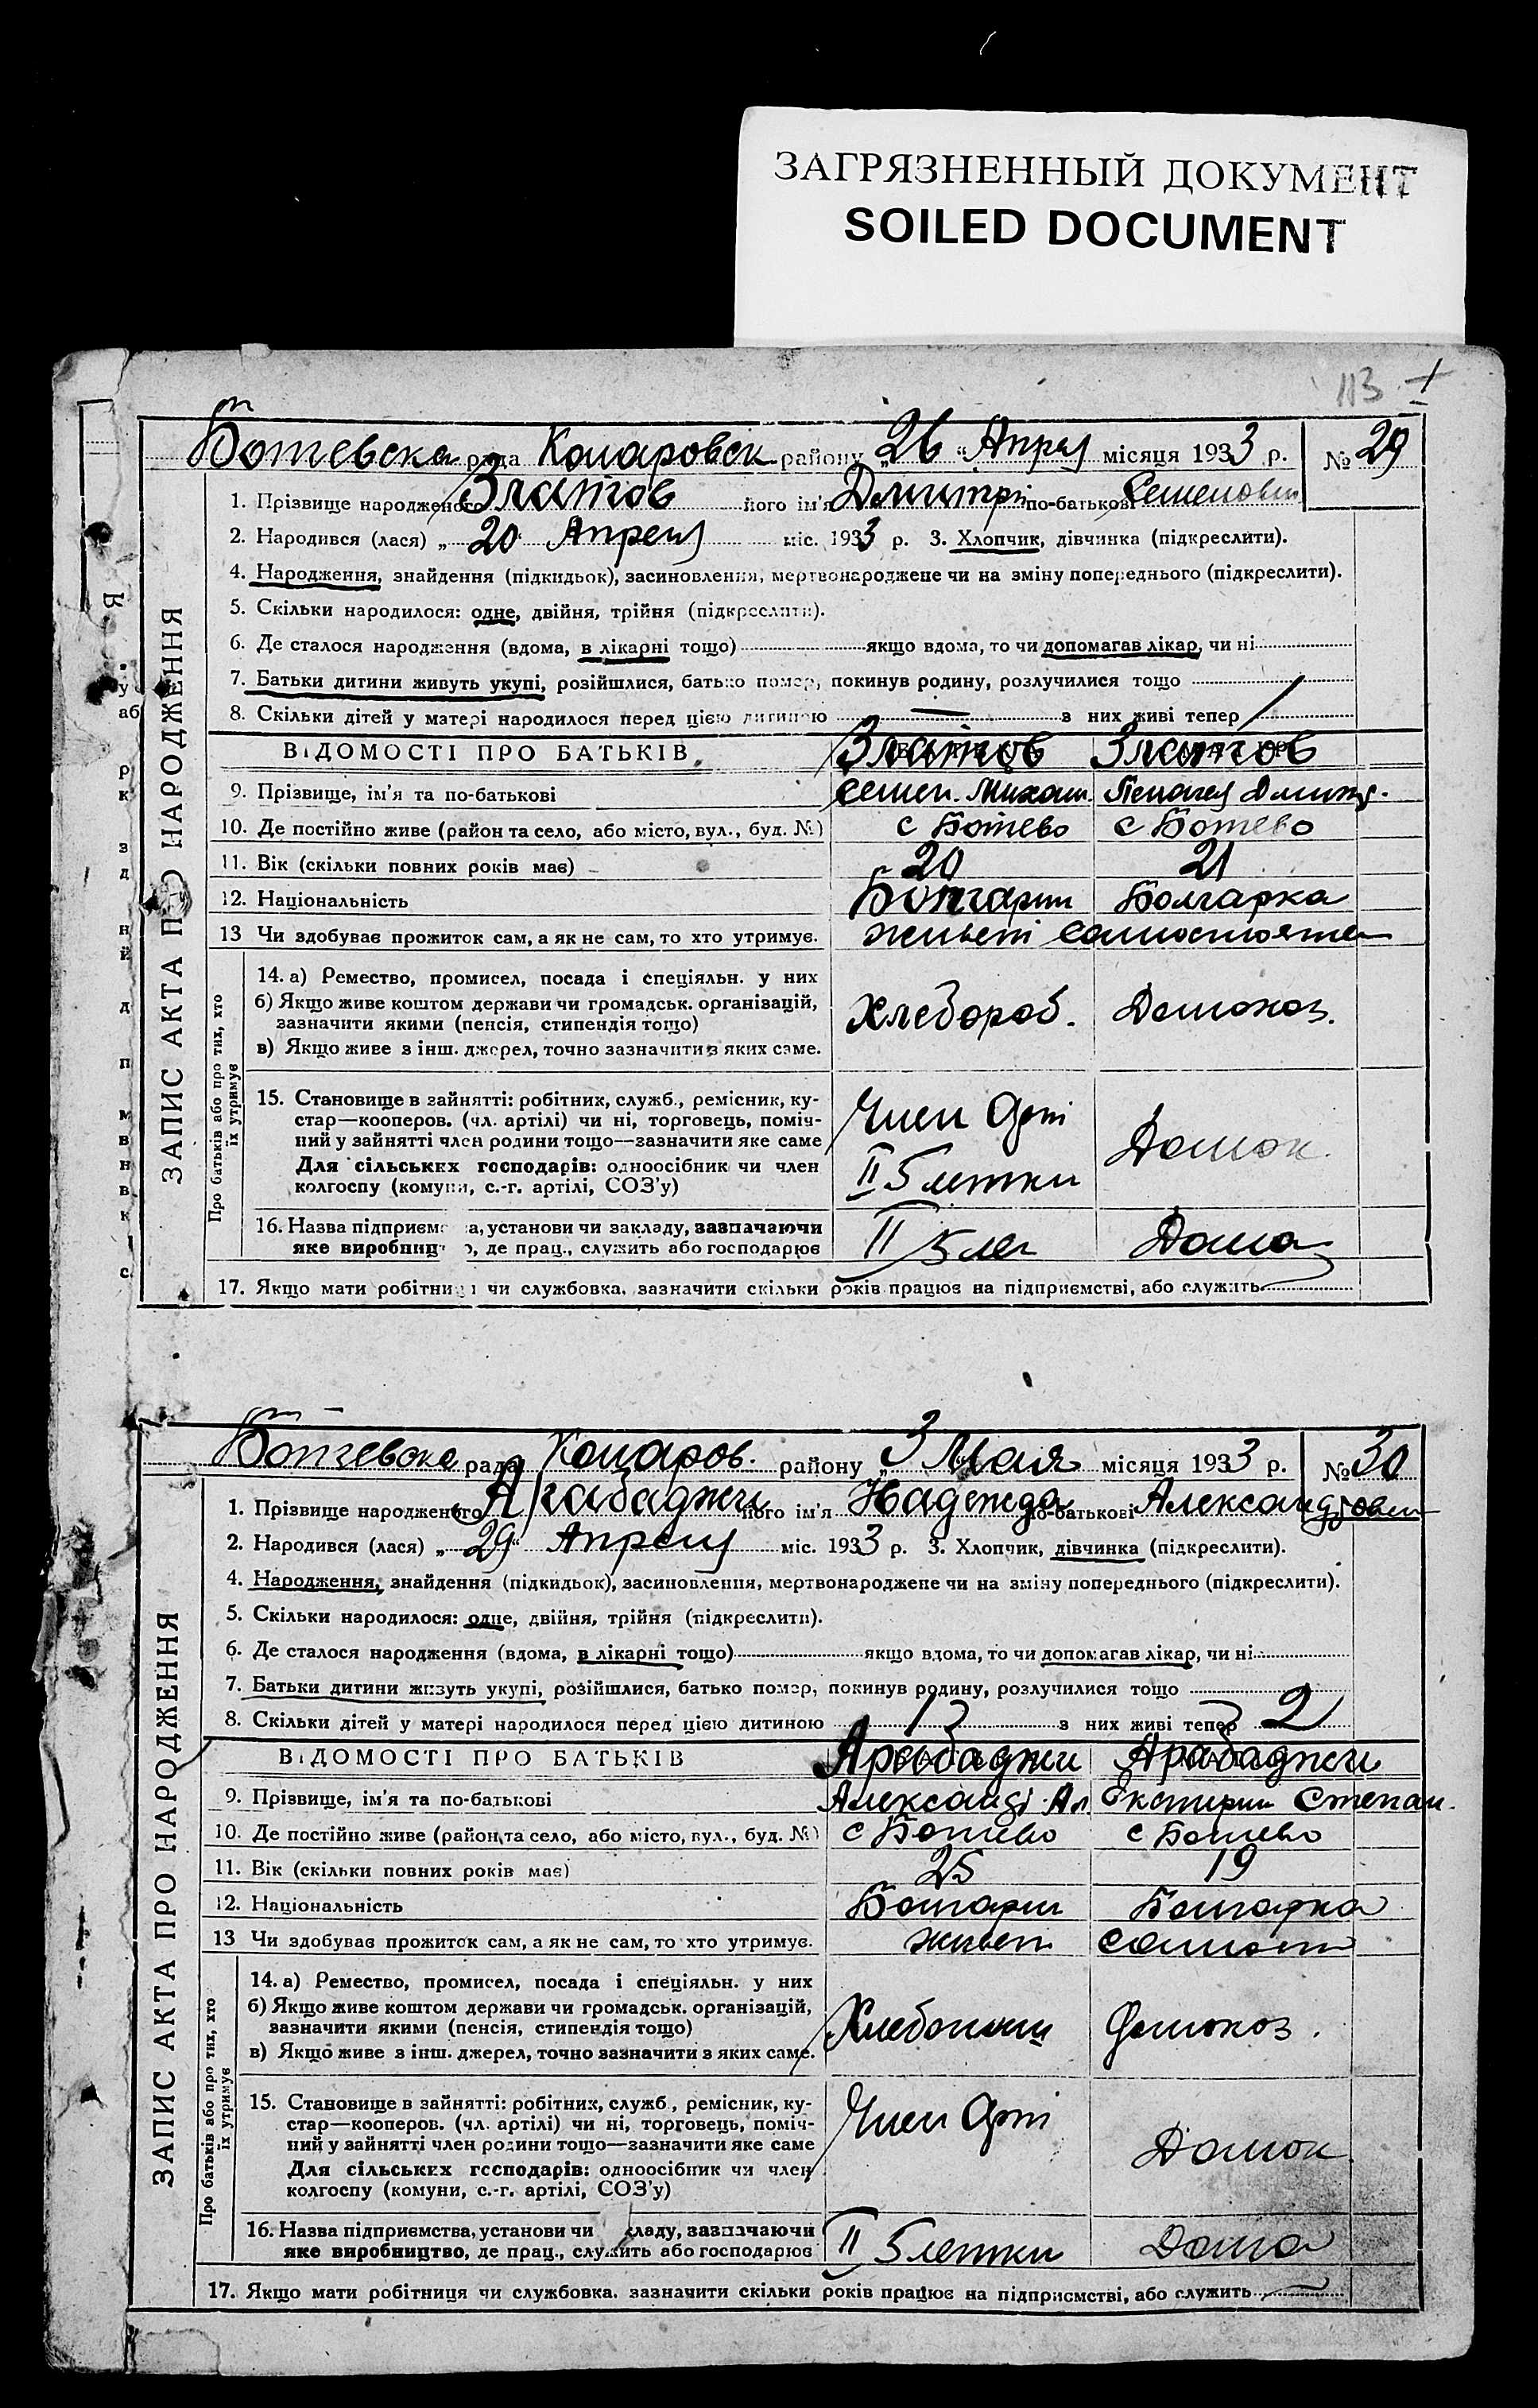 ЗАГРЯЗНЕННЫЙ ДОКУМЕНТ
SOILED DOCUMENT
113
ЗАПИС АКТА ПРО НАРОДЖЕННЯ
Ботевска рада Коларовск району „26“ Апреля місяця 1933 р. № 29
1. Прізвище народженого Златов його ім'я Дмитрий по-батькові Семенович
2. Народився (лася) „20“ Апреля міс. 1933 р. 3. Хлопчик, дівчинка (підкреслити).
4. Народження, знайдення (підкидьок), засиновлення, мертвонароджене чи на зміну попереднього (підкреслити).
5. Скільки народилося: одне, двійня, трійня (підкреслити).
6. Де сталося народження (вдома, в лікарні тощо) якщо вдома, то чи допомагав лікар, чи ні
7. Батьки дитини живуть укупі, розійшлися, батько помер, покинув родину, розлучилися тощо
8. Скільки дітей у матері народилося перед цією дитиною — з них живі тепер /
ВІДОМОСТІ ПРО БАТЬКІВ Златов Златов
9. Прізвище, ім'я та по-батькові Семен. Михаил. Пелагея Дмитр.
10. Де постійно живе (район та село, або місто, вул., буд. №) с Ботево с Ботево
11. Вік (скільки повних років має) 20 21
12. Національність Болгарин Болгарка
13 Чи здобував прожиток сам, а як не сам, то хто утримує. живет самостоятел
Про батьків або про тих, хто їх утримує
14. а) Ремество, промисел, посада і спеціяльн. у них
б) Якщо живе коштом держави чи громадськ. організацій,
зазначити якими (пенсія, стипендія тощо) Хлебороб. Домохоз.
в) Якщо живе з інш. джерел, точно зазначити з яких саме.
15. Становище в зайнятті: робітник, служб., ремісник, ку-
стар—кооперов. (чл. артілі) чи ні, торговець, поміч- Член Арт
ний у зайнятті член родини тощо—зазначити яке саме
Для сільських господарів: одноосібник чи член Домох.
колгоспу (комуни, с.-г. артілі, СОЗ'у) II 5 летки
16. Назва підприємства, установи чи закладу, зазначаючи
яке виробництво, де прац., служить або господарює II 5 лет Дома
17. Якщо мати робітниця чи службовка, зазначити скільки років працює на підприємстві, або служить
ЗАПИС АКТА ПРО НАРОДЖЕННЯ
Ботевска рада Коларов. району „3 Мая місяця 1933 р. № 30
1. Прізвище народженого Арабаджи його ім'я Надежда по-батькові Александровн
2. Народився (лася) „29“ Апреля міс. 1933 р. 3. Хлопчик, дівчинка (підкреслити).
4. Народження, знайдення (підкидьок), засиновлення, мертвонароджене чи на зміну попереднього (підкреслити).
5. Скільки народилося: одне, двійня, трійня (підкреслити).
6. Де сталося народження (вдома, в лікарні тощо) якщо вдома, то чи допомагав лікар, чи ні
7. Батьки дитини живуть укупі, розійшлися, батько помер, покинув родину, розлучилися тощо
8. Скільки дітей у матері народилося перед цією дитиною з них живі тепер 2
ВІДОМОСТІ ПРО БАТЬКІВ Арабаджи Арабаджи
9. Прізвище, ім'я та по-батькові Александ. Ал Екатерин Степан.
10. Де постійно живе (район та село, або місто, вул., буд. №) с Ботево с Ботево
11. Вік (скільки повних років має) 25 19
12. Національність Болгарин Болгарка
13 Чи здобував прожиток сам, а як не сам, то хто утримує. живет самост
Про батьків або про тих, хто їх утримує
14. а) Ремество, промисел, посада і спеціяльн. у них
б) Якщо живе коштом держави чи громадськ. організацій,
зазначити якими (пенсія, стипендія тощо) Хлебопаш Домохоз.
в) Якщо живе з інш. джерел, точно зазначити з яких саме.
15. Становище в зайнятті: робітник, служб., ремісник, ку-
стар—кооперов. (чл. артілі) чи ні, торговець, поміч- Член Арт
ний у зайнятті член родини тощо—зазначити яке саме Домох
Для сільських господарів: одноосібник чи член
колгоспу (комуни, с.-г. артілі, СОЗ'у)
16. Назва підприємства, установи чи закладу, зазначаючи
яке виробництво, де прац., служить або господарює II 5 летки Дома
17. Якщо мати робітниця чи службовка, зазначити скільки років працює на підприємстві, або служить